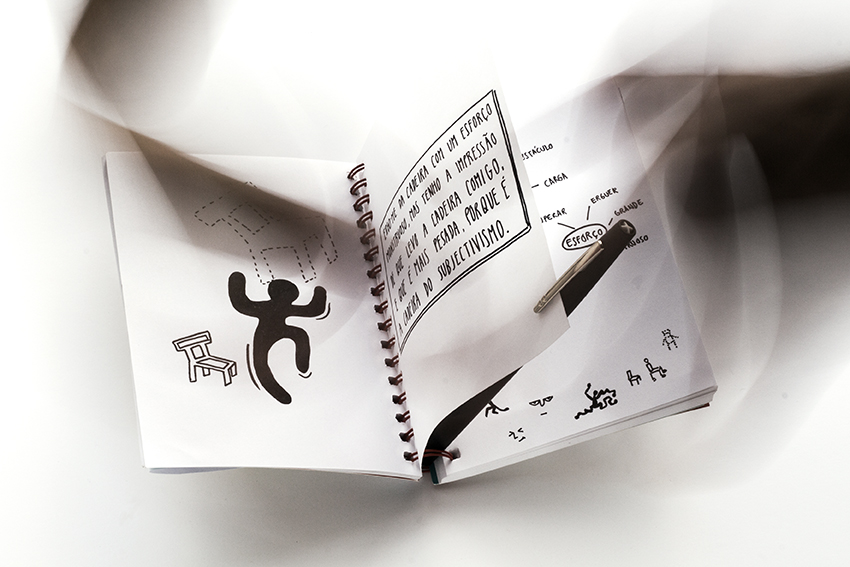 DA CADEIRA COM UM ESFORÇO
MONSTRUOSO, MAS TENHO A IMPRESSÃO
DE QUE LEVO A CADEIRA COMIGO,
E QUE É MAIS PESADA, PORQUE É
A CADEIRA DO SUBJECTIVISMO.
STÁCULO
CARGA
ERGUER
GRANDE
ESFORÇO